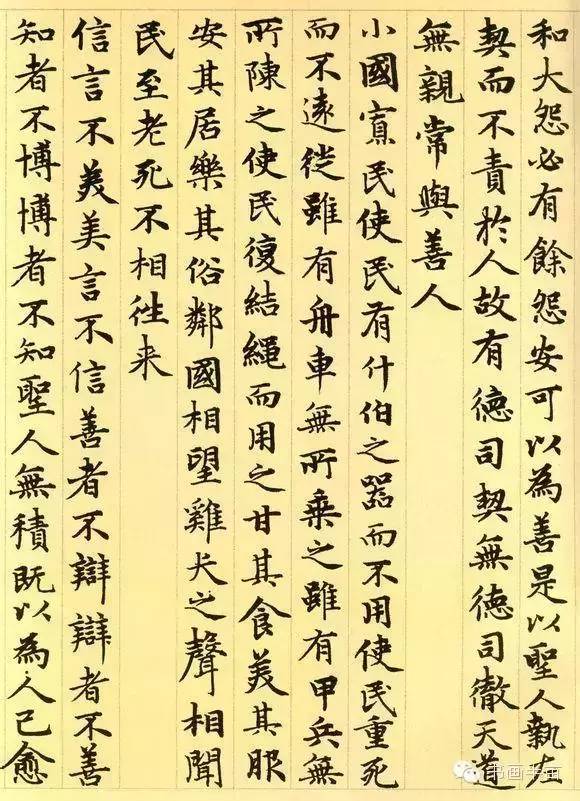 和大怨必有餘怨安可以為善是以聖人執左
契而不責於人故有德司契無德司徹天道
無親常與善人
小國寡民使民有什伯之器而不用使民重死
而不遠徙雖有舟車無所乗之雖有甲兵無
所陳之使民復結繩而用之甘其食美其服
安其居樂其俗鄰國相望雞犬之聲相聞
民至老死不相往来
信言不美美言不信善者不辯辯者不善
知者不博博者不知聖人無積既以為人己愈
书画半亩